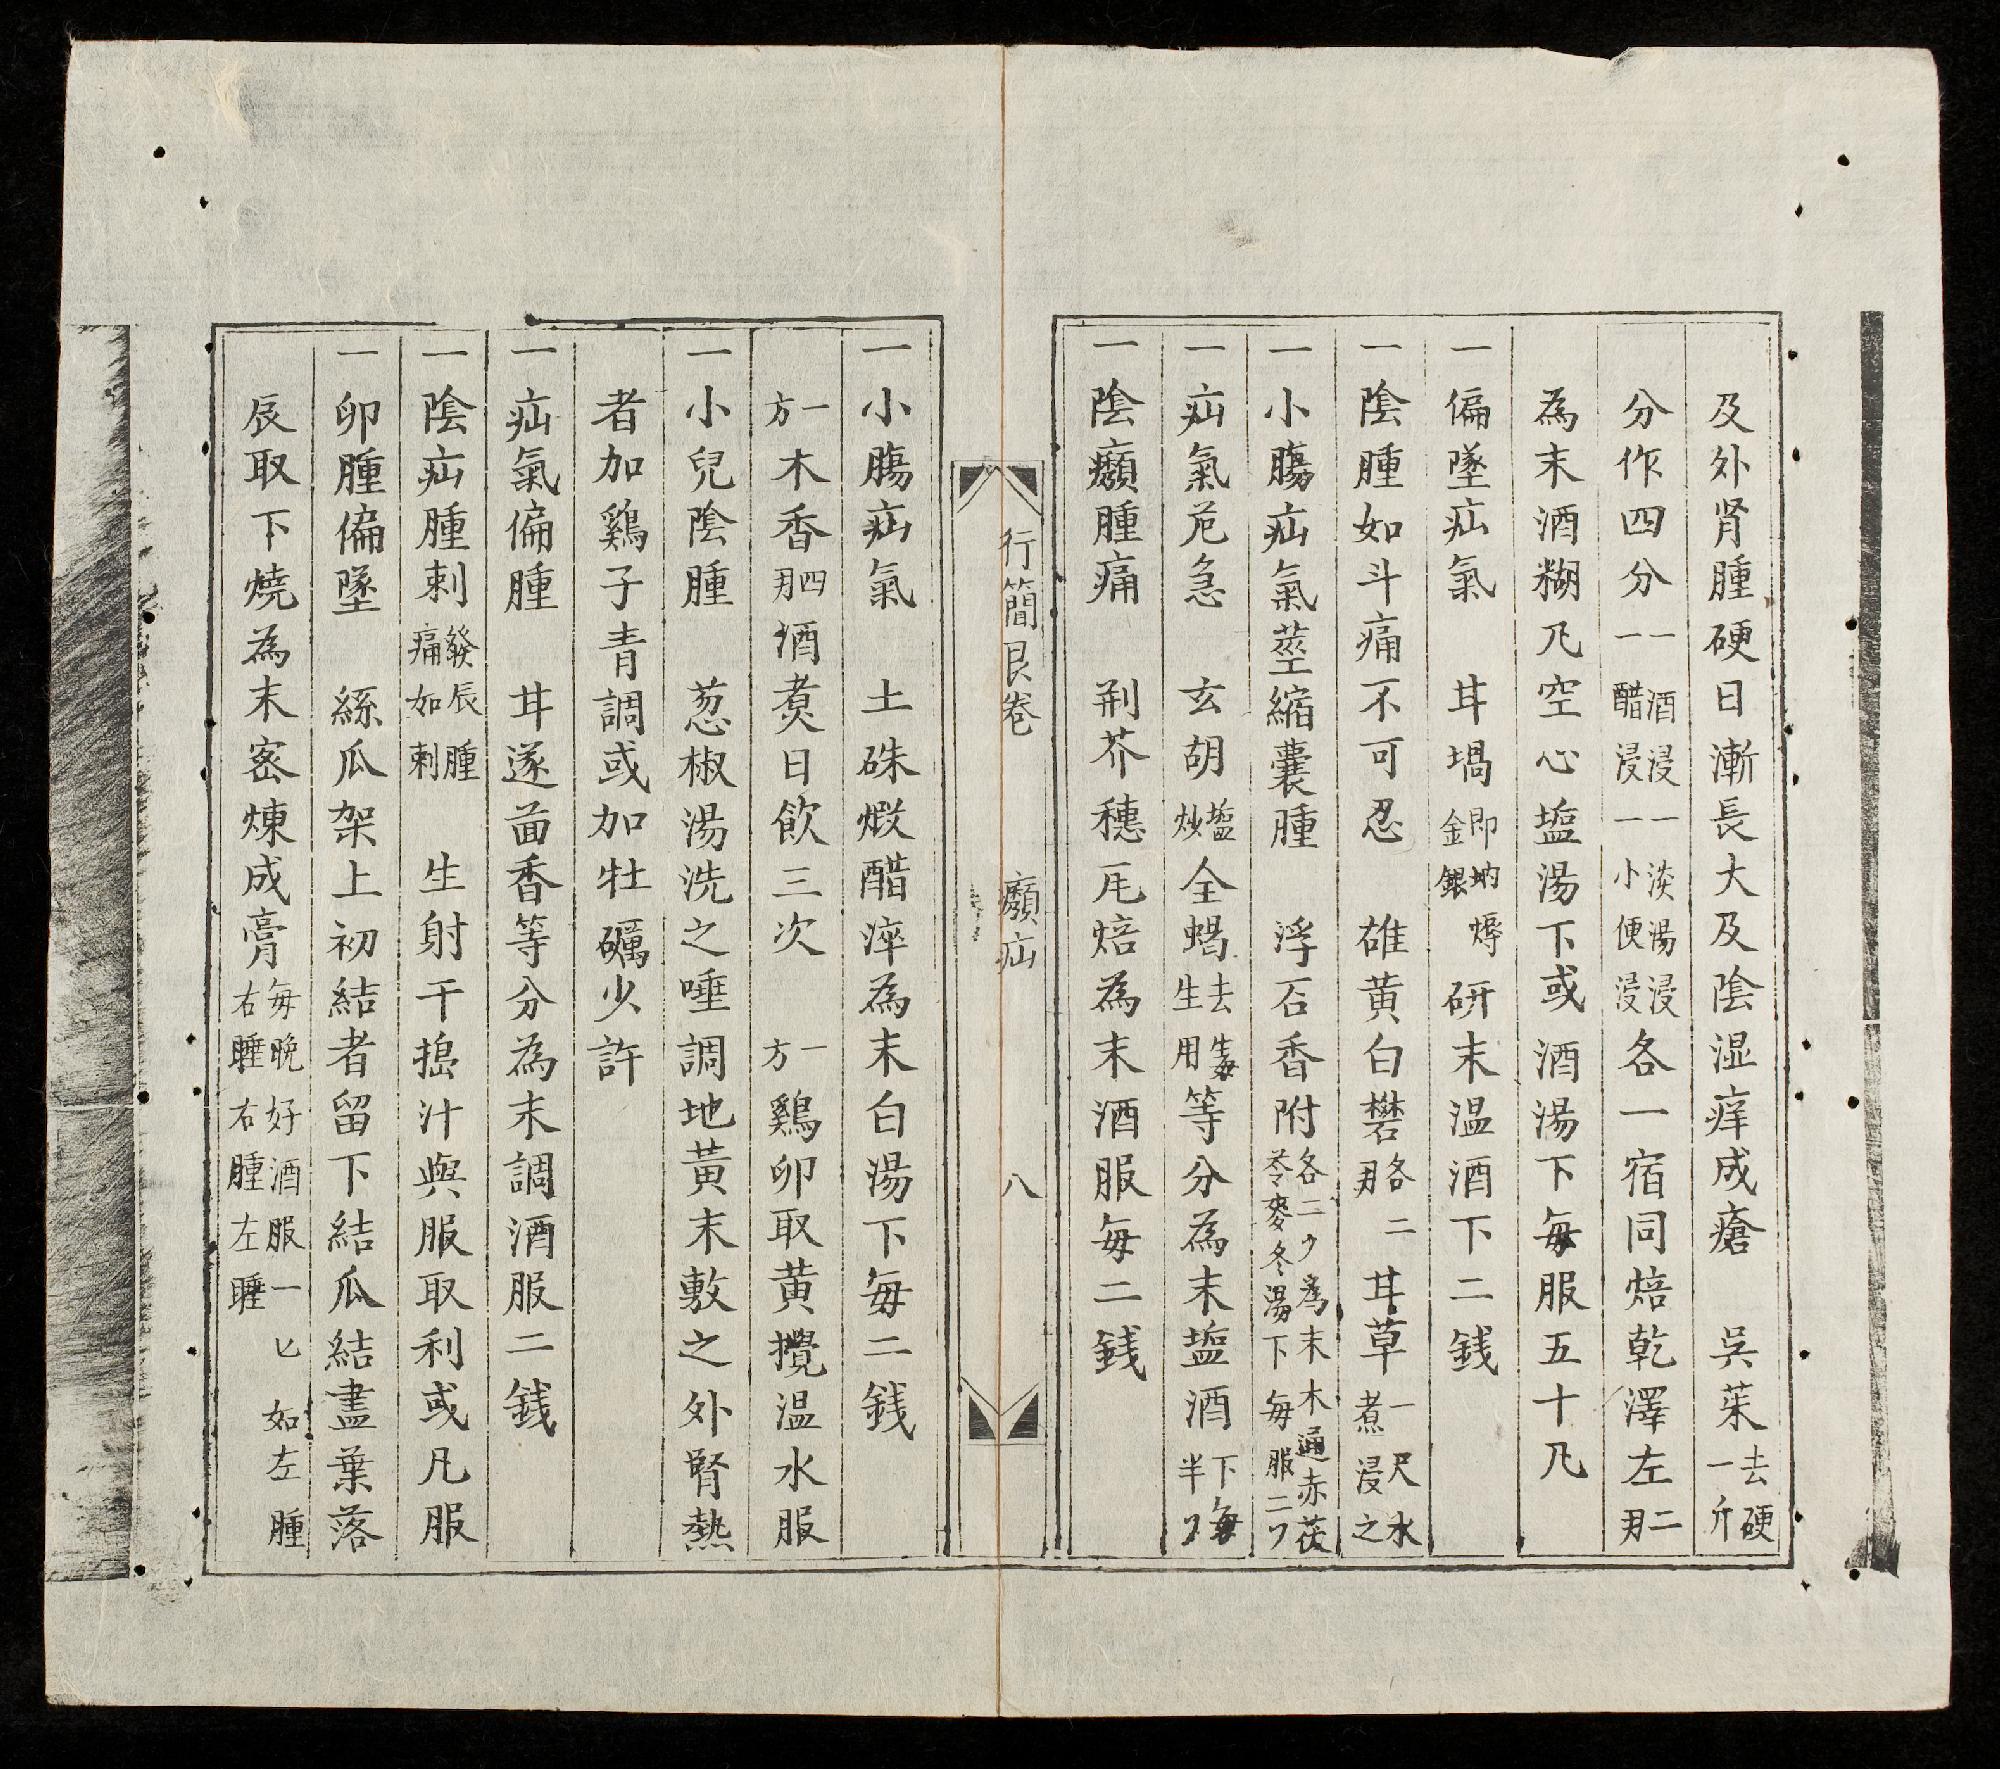 及外肾腫硬日漸長大及陰湿痒成瘡 吳茱去硬一斤
分作四分一酒浸一醋浸一淡湯浸一小便浸各一宿同焙乾澤左二刄
為末酒糊卂空心塩湯下或酒湯下每服五十卂
一偏墜疝氣 甘堝即蚋金銀㷮研末温酒下二銭
一陰腫如斗痛不可忍 雄黄白礬各二刄甘草一尺水煮浸之
一小腸疝氣莖縮囊腫 浮石香附各二少為末木通赤茯苓麥冬湯下每服二フ
一疝氣危急 玄胡塩炒全蝎去毒生用等分為末塩酒下每半フ
一陰㿗腫痛 荆芥穗瓦焙為末酒服每二銭
行簡艮卷 㿗疝 八
一小腸疝氣 土硃煆醋淬為末白湯下每二銭
一方木香四刄酒煑日飲三次 一方鷄卵取黄攪温水服
一小兒陰腫 葱椒湯洗之唾調地黄末敷之外腎熱
者加鷄子青調或加牡礪少許
一疝氣偏腫 甘遂茴香等分為末調酒服二銭
一陰疝腫刺發辰腫痛如刺 生射干搗汁與服取利或凡服
一卵腫偏墜 絲瓜架上初結者留下結瓜結盡葉落
辰取下燒為末宻煉成膏每晩好酒服一匕如左腫左睡右腫右睡